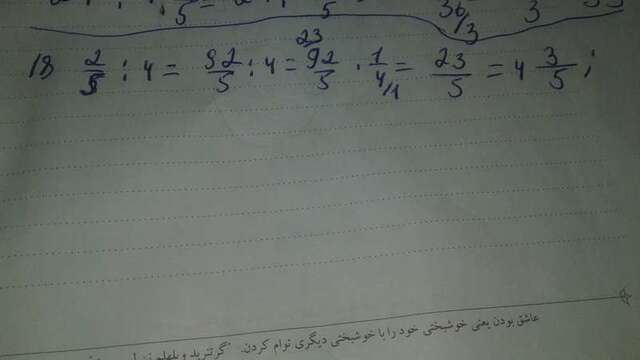 5 = 5 36/3 3
18 2/5 : 4 = 92/5 : 4 = 92/5 · 1/4 = 23/5 = 4 3/5 ;
23 1
عاشق بودن یعنی خوشبختی خود را با خوشبختی دیگری توام کردن.